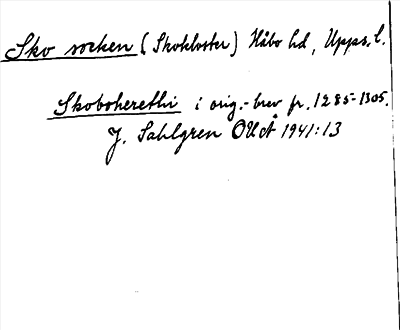 Sko socken (Skokloster) Håbo hd, Upps. l.
Skoboherethi i orig.-brev fr. 1285-1305.
J. Sahlgren OUÅ 1941:13